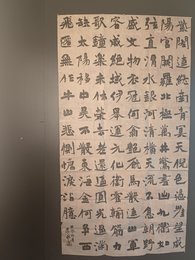 紫閣連終南青冥天倪色憑崖望咸
陽宮闕羅北極萬井驚畫出九衢如
弦直渭水銀河清橫天流不息朝野
盛文物衣冠何翕赩廄馬散連山軍
容威絕域伊皋運元化衛霍輸筋力
歌鐘樂未休榮去老還逼圓光過滿
缺太陽移中昃不散東海金何爭西
飛匿無作牛山悲惻愴淚沾臆